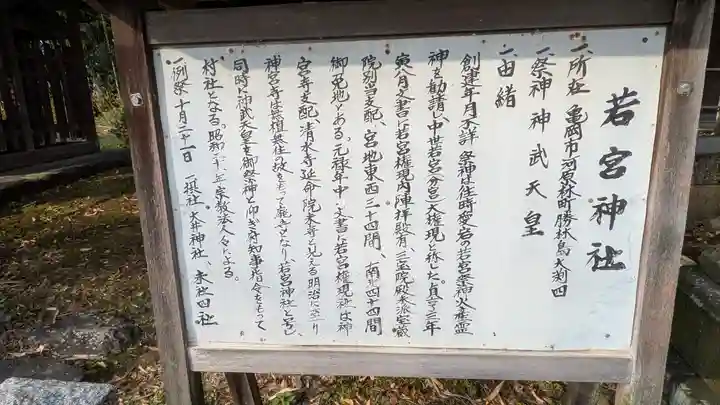 若宮神社
一、所在 亀岡市河原林町勝林島大渕四
一、祭神 神武天皇
一、由緒
創建年月不詳 祭神は往時愛宕の若宮雷神火産霊
神を勧請し、中世若宮八分宮大権現と称した。貞享三年
寅八月文書に若宮権現内陣拝殿有、三宝院殿末派安蔵
院別当支配、宮地東西三十四間、南北四十四間
御免地である。元禄年中の文書に若宮権現社は神
宮寺支配、清水寺延命院末寺と見える。明治に至り
神宮寺は無檀無住の故をもって廃寺となり若宮神社と号し
同時に神武天皇を御祭神と仰ぎ府知事指令をもって
村社となる。昭和二十一年宗教法人となる。
一、例祭 十月二十一日 一、摂社 大井神社、末社四社